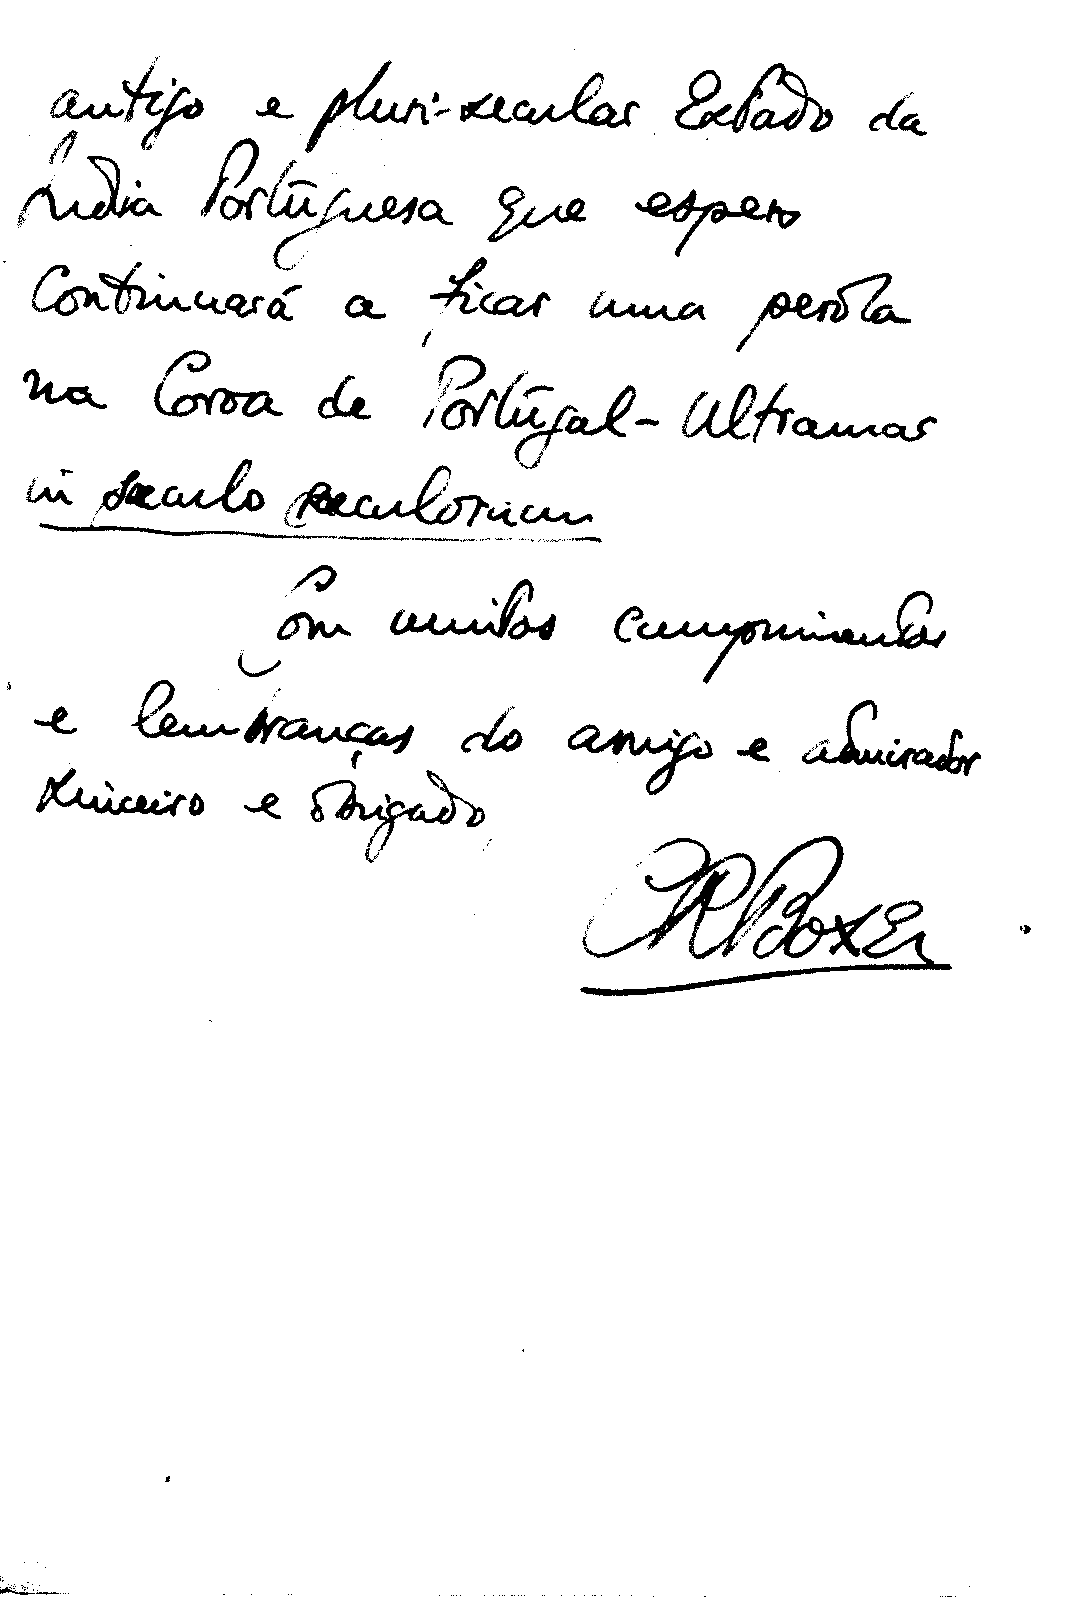 antigo e pluri-secular Estado da
India Portuguesa que espero
continuará a ficar uma perola
na Coroa de Portugal-Ultramar
in saeculo saeculorum
Com muitos cumprimentos
e lembranças do amigo e admirador
sinceiro e obrigado
CR Boxer